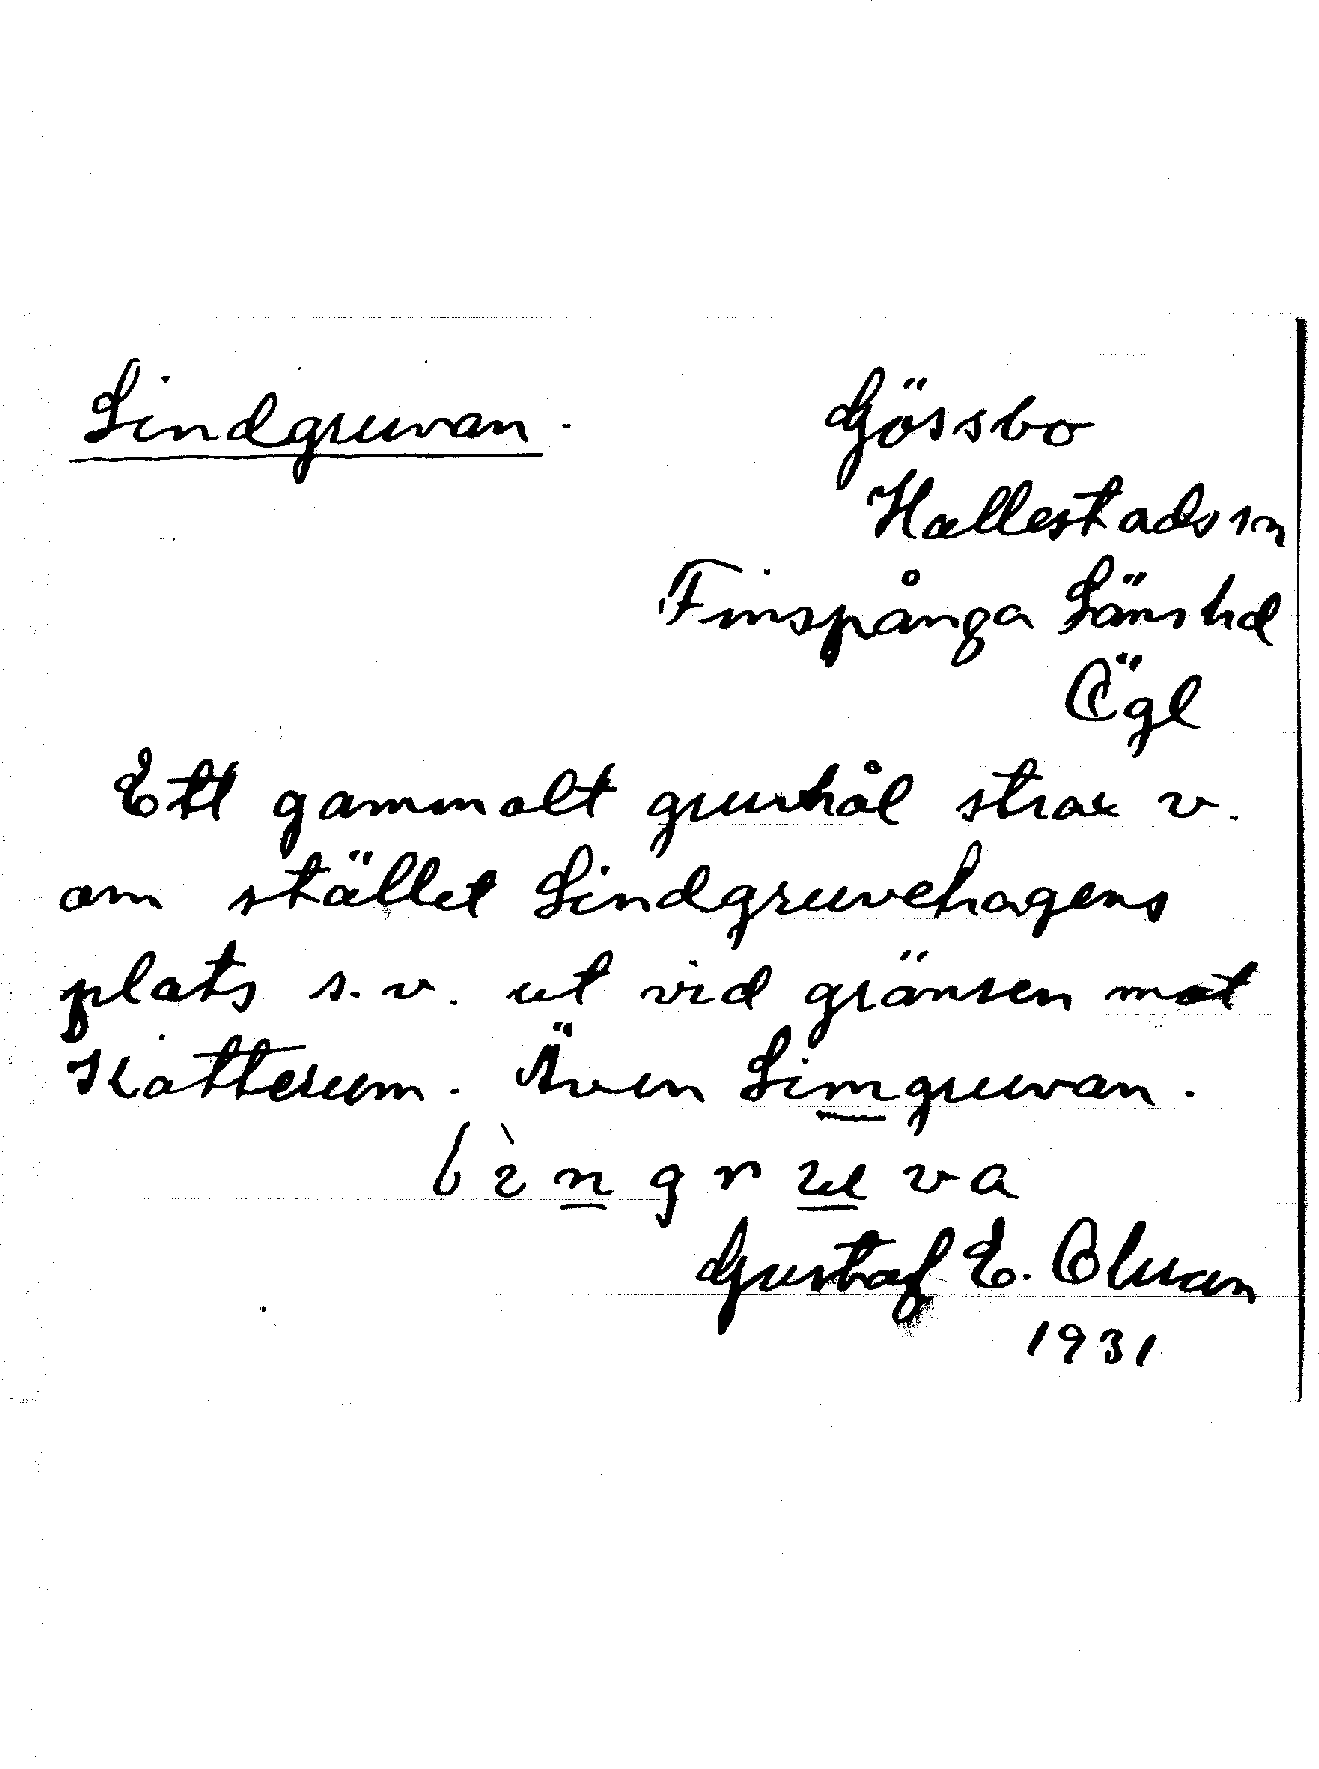 Lindgruvan.
Gössbo
Hällestads sn
Finspånga Länshd
Ögl
Ett gammalt gruvhål strax v.
om stället Lindgruvehagens
plats s.v. ut vid gränsen mot
Katterum. Även Limgruvan.
Gustaf E. Olsson
1931